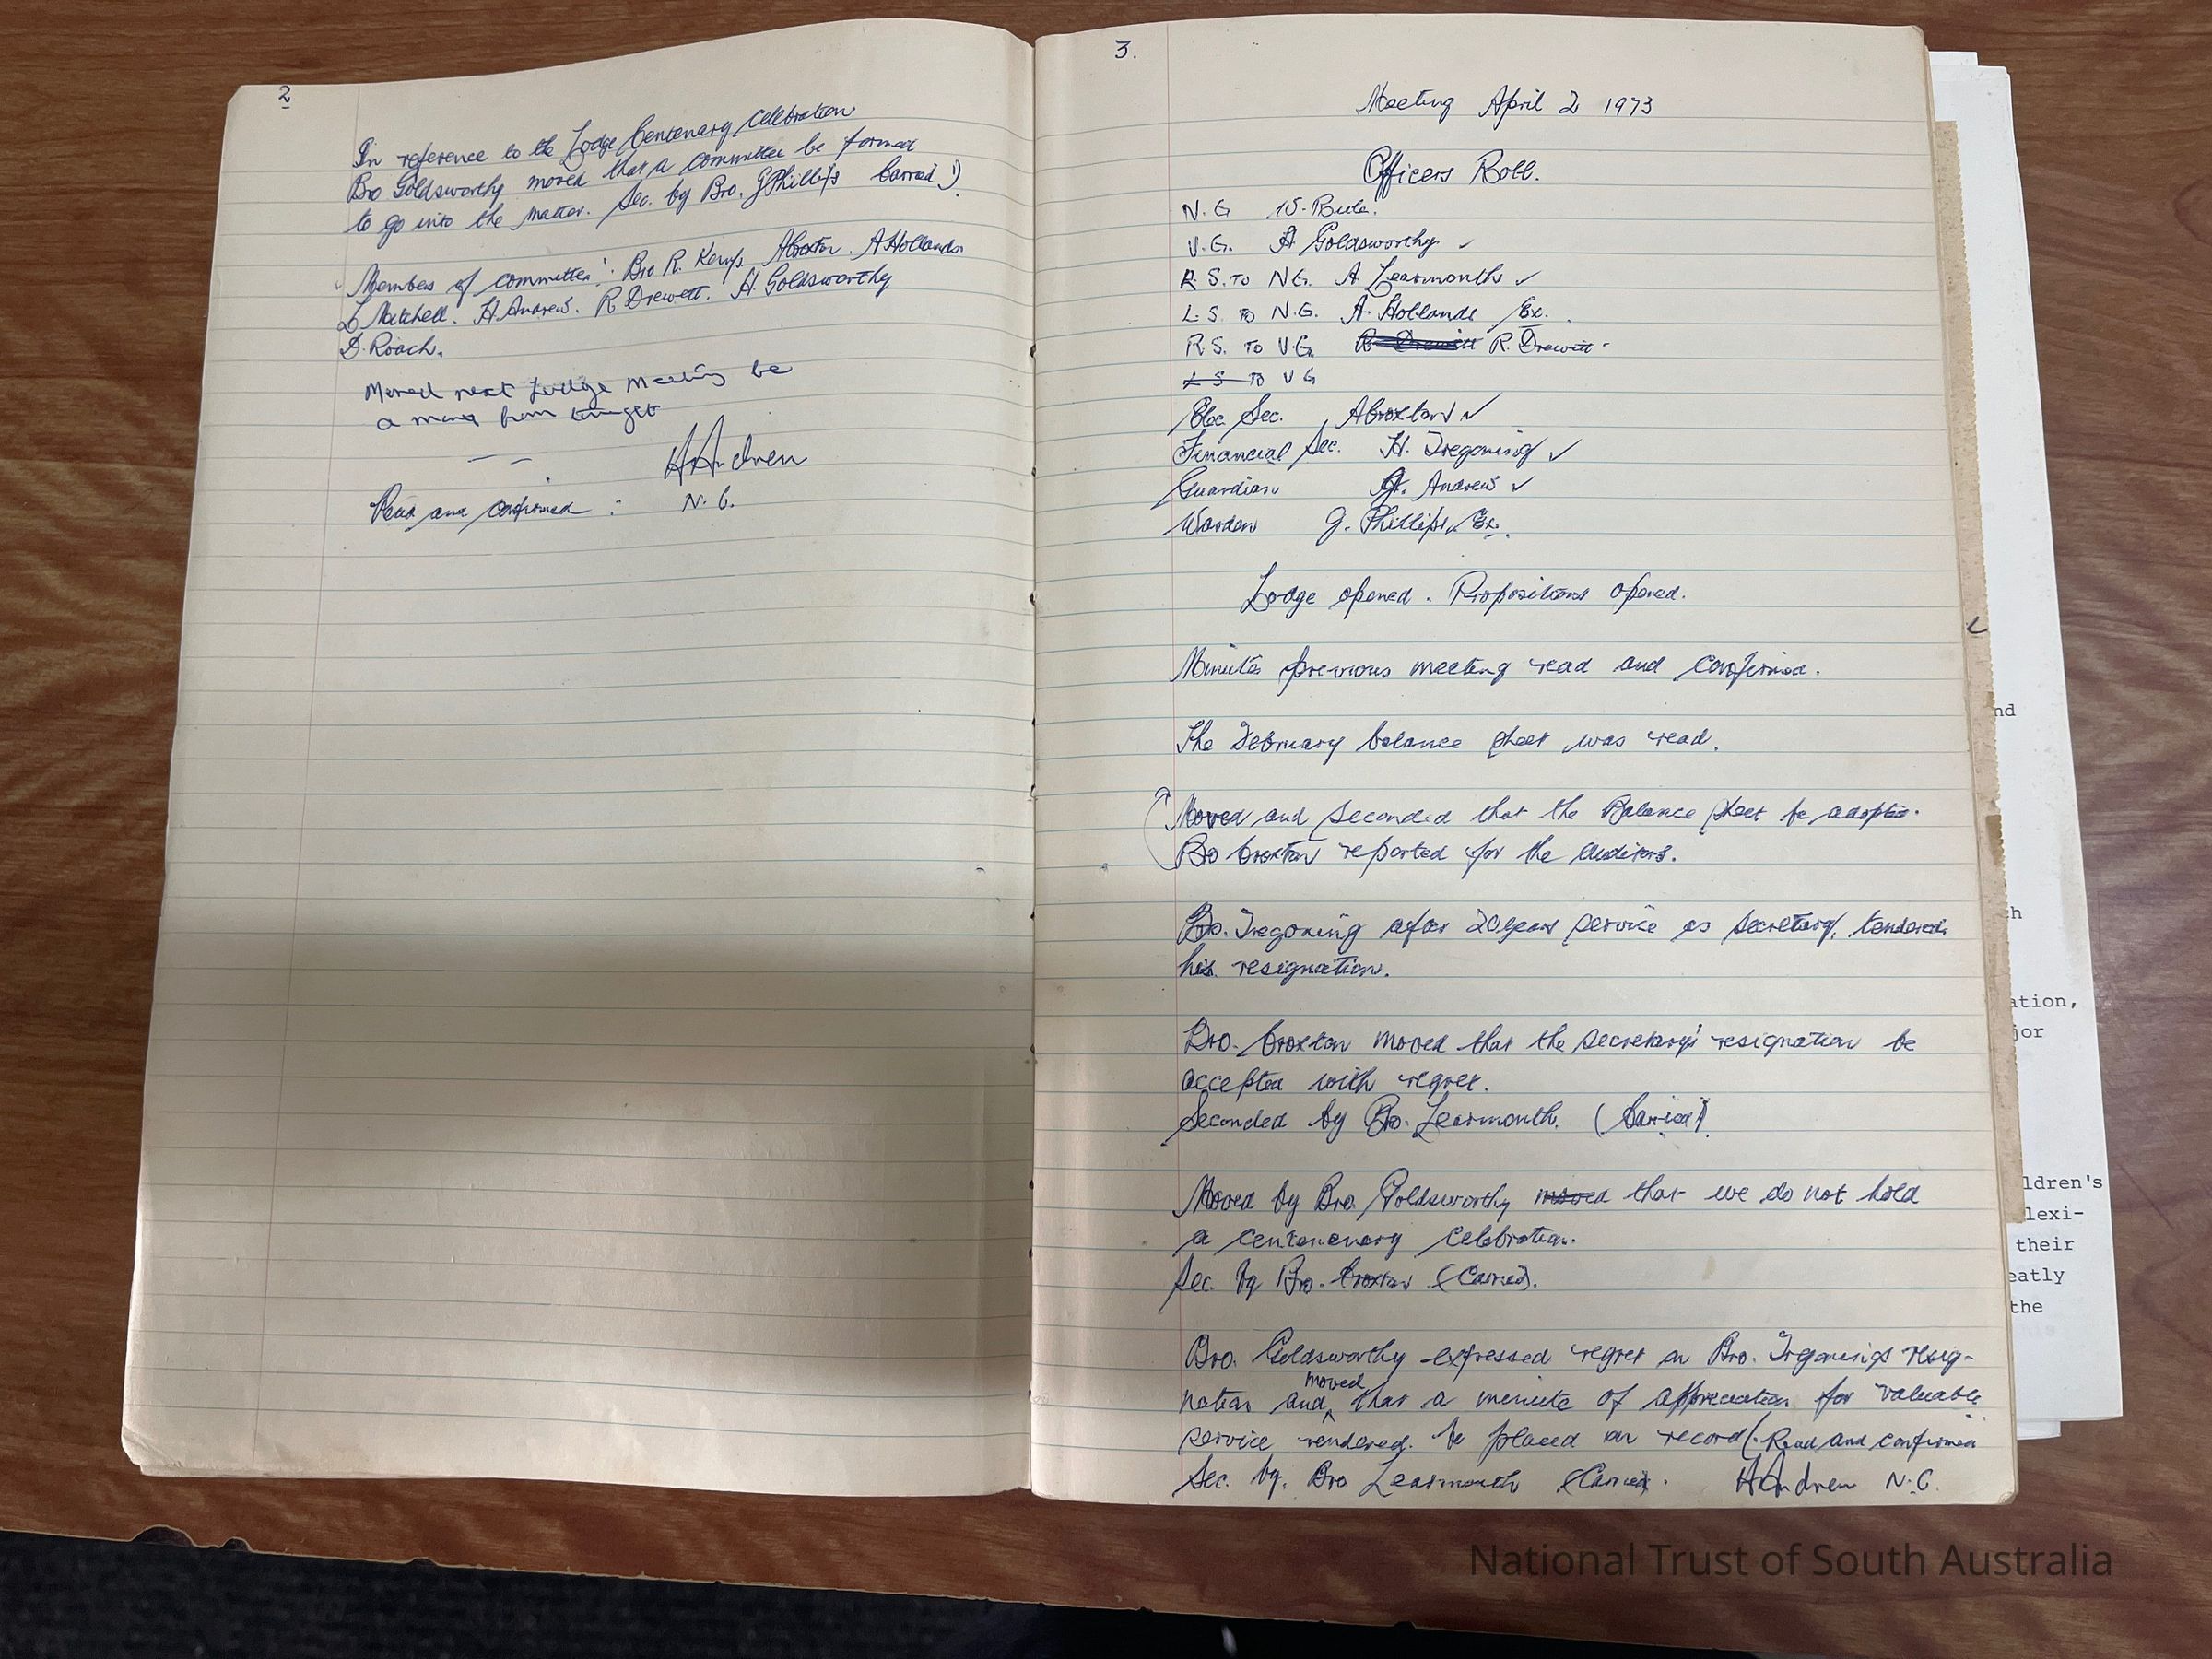 2
In reference to the Lodge Centenary Celebration
Bro Goldsworthy moved that a committee be formed
to go into the matter. Sec. by Bro. G Phillips Carried.)
Members of committee: Bro R. Kemp, A Croxton. A Hollands
L Mitchell. H. Andrew. R Drewett. H. Goldsworthy
D. Roach.
Moved next Lodge Meeting be
a month from tonight
H Andrew
Read and confirmed : N. G.
3.
Meeting April 2 1973
Officers Roll.
N. G
V. G. H Goldsworthy ✓
R. S. TO N.G. A Learmonth ✓
L. S. TO N.G. A. Hollands Ex.
R S. TO V.G. R. Drewett R. Drewett
L S TO V G
Elec Sec. A Croxton ✓
Financial Sec. H. Tregoning ✓
Guardian Andrew ✓
Warden G. Phillips, Ex.
Lodge opened. Propositions opened.
Minutes previous meeting read and confirmed.
The February balance sheet was read.
Moved and seconded that the Balance sheet be adopted.
Bro Croxton reported for the auditors.
Bro. Tregoning after 20 years service as secretary, tendered
his resignation.
Bro. Croxton moved that the secretary's resignation be
accepted with regret.
Seconded by Bro. Learmonth. (Carried)
Moved by Bro. Goldsworthy moved that we do not hold
a centenary celebration.
Sec. by Bro. Croxton (Carried).
Bro. Goldsworthy expressed regret on Bro. Tregonings resig-
moved
nation and that a minute of appreciation for valuable
service rendered. be placed on record. Read and confirmed
Sec. by. Bro Learmonth (Carried. H Andrew N. G.
nd
ch
ation,
jor
ldren's
lexi-
their
eatly
the
National Trust of South Australia